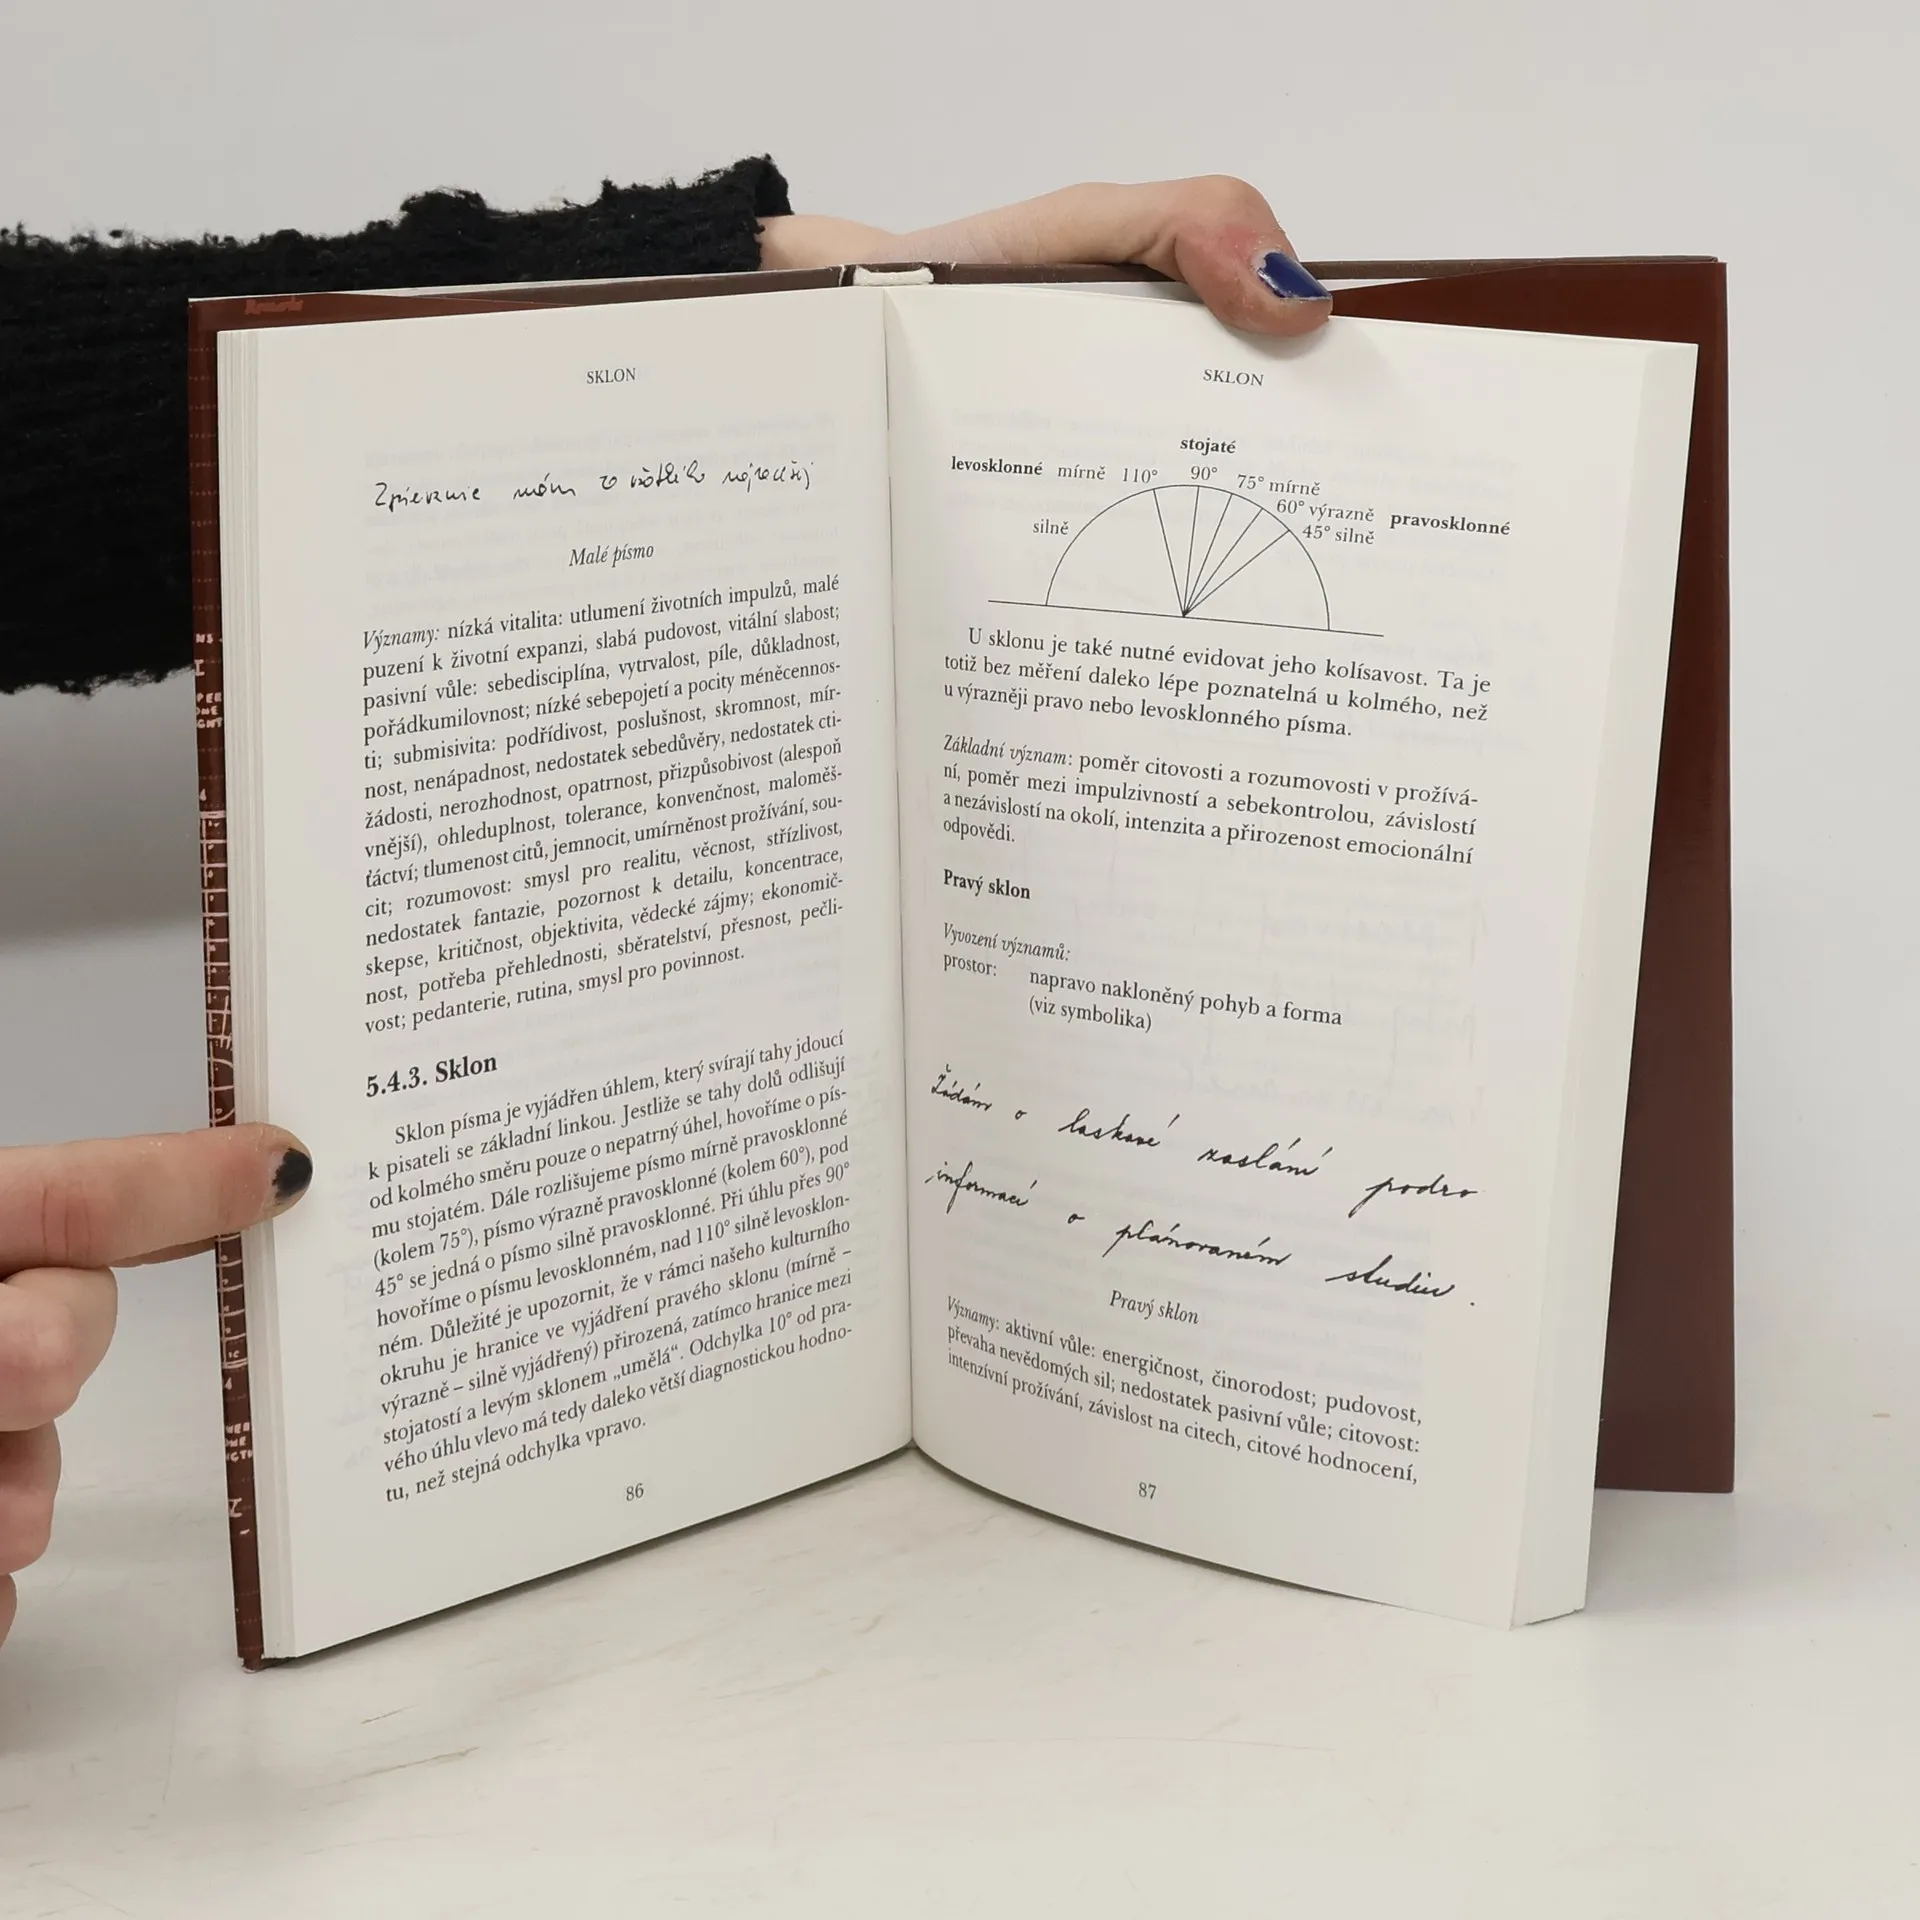 SKLON
Zpievanie mám zo všetkého najradšej
Malé písmo
Významy: nízká vitalita: utlumení životních impulzů, malé
puzení k životní expanzi, slabá pudovost, vitální slabost;
pasivní vůle: sebedisciplína, vytrvalost, píle, důkladnost,
pořádkumilovnost; nízké sebepojetí a pocity méněcennos-
ti; submisivita: podřídivost, poslušnost, skromnost, mír-
nost, nenápadnost, nedostatek sebedůvěry, nedostatek cti-
žádosti, nerozhodnost, opatrnost, přizpůsobivost (alespoň
vnější), ohleduplnost, tolerance, konvenčnost, maloměš-
ťáctví; tlumenost citů, jemnocit, umírněnost prožívání, sou-
cit; rozumovost: smysl pro realitu, věcnost, střízlivost,
nedostatek fantazie, pozornost k detailu, koncentrace,
skepse, kritičnost, objektivita, vědecké zájmy; ekonomič-
nost, potřeba přehlednosti, sběratelství, přesnost, pečli-
vost; pedanterie, rutina, smysl pro povinnost.
5.4.3. Sklon
Sklon písma je vyjádřen úhlem, který svírají tahy jdoucí
k pisateli se základní linkou. Jestliže se tahy dolů odlišují
od kolmého směru pouze o nepatrný úhel, hovoříme o pís-
mu stojatém. Dále rozlišujeme písmo mírně pravosklonné
(kolem 75°), písmo výrazně pravosklonné (kolem 60°), pod
45° se jedná o písmo silně pravosklonné. Při úhlu přes 90°
hovoříme o písmu levosklonném, nad 110° silně levosklon-
ném. Důležité je upozornit, že v rámci našeho kulturního
okruhu je hranice ve vyjádření pravého sklonu (mírně –
výrazně – silně vyjádřený) přirozená, zatímco hranice mezi
stojatostí a levým sklonem „umělá“. Odchylka 10° od pra-
vého úhlu vlevo má tedy daleko větší diagnostickou hodno-
tu, než stejná odchylka vpravo.
86
SKLON
stojaté
levosklonné mírně 110° 90° 75° mírně
60° výrazně pravosklonné
silně 45° silně
U sklonu je také nutné evidovat jeho kolísavost. Ta je
totiž bez měření daleko lépe poznatelná u kolmého, než
u výrazněji pravo nebo levosklonného písma.
Základní význam: poměr citovosti a rozumovosti v prožívá-
ní, poměr mezi impulzivností a sebekontrolou, závislostí
a nezávislostí na okolí, intenzita a přirozenost emocionální
odpovědi.
Pravý sklon
Vyvození významů:
prostor: napravo nakloněný pohyb a forma
(viz symbolika)
Žádám o laskavé zaslání podro
informací o plánovaném studiu.
Pravý sklon
Významy: aktivní vůle: energičnost, činorodost; pudovost,
převaha nevědomých sil; nedostatek pasivní vůle; citovost:
intenzívní prožívání, závislost na citech, citové hodnocení,
87